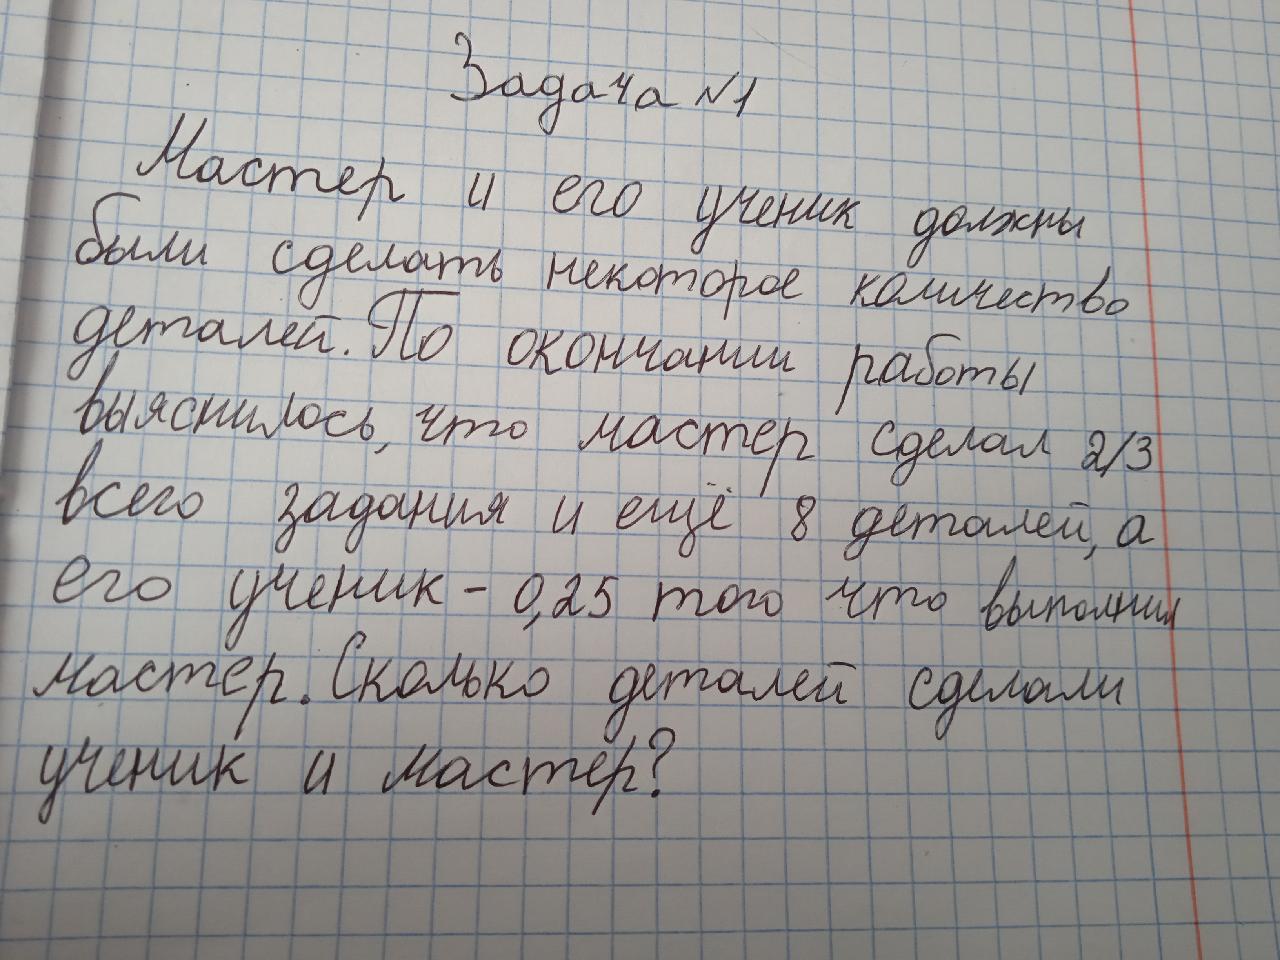 Задача №1
Мастер и его ученик должны
были сделать некоторое количество
деталей. По окончании работы
выяснилось, что мастер сделал 2/3
всего задания и ещё 8 деталей, а
его ученик - 0,25 того что выполнил
мастер. Сколько деталей сделали
ученик и мастер?